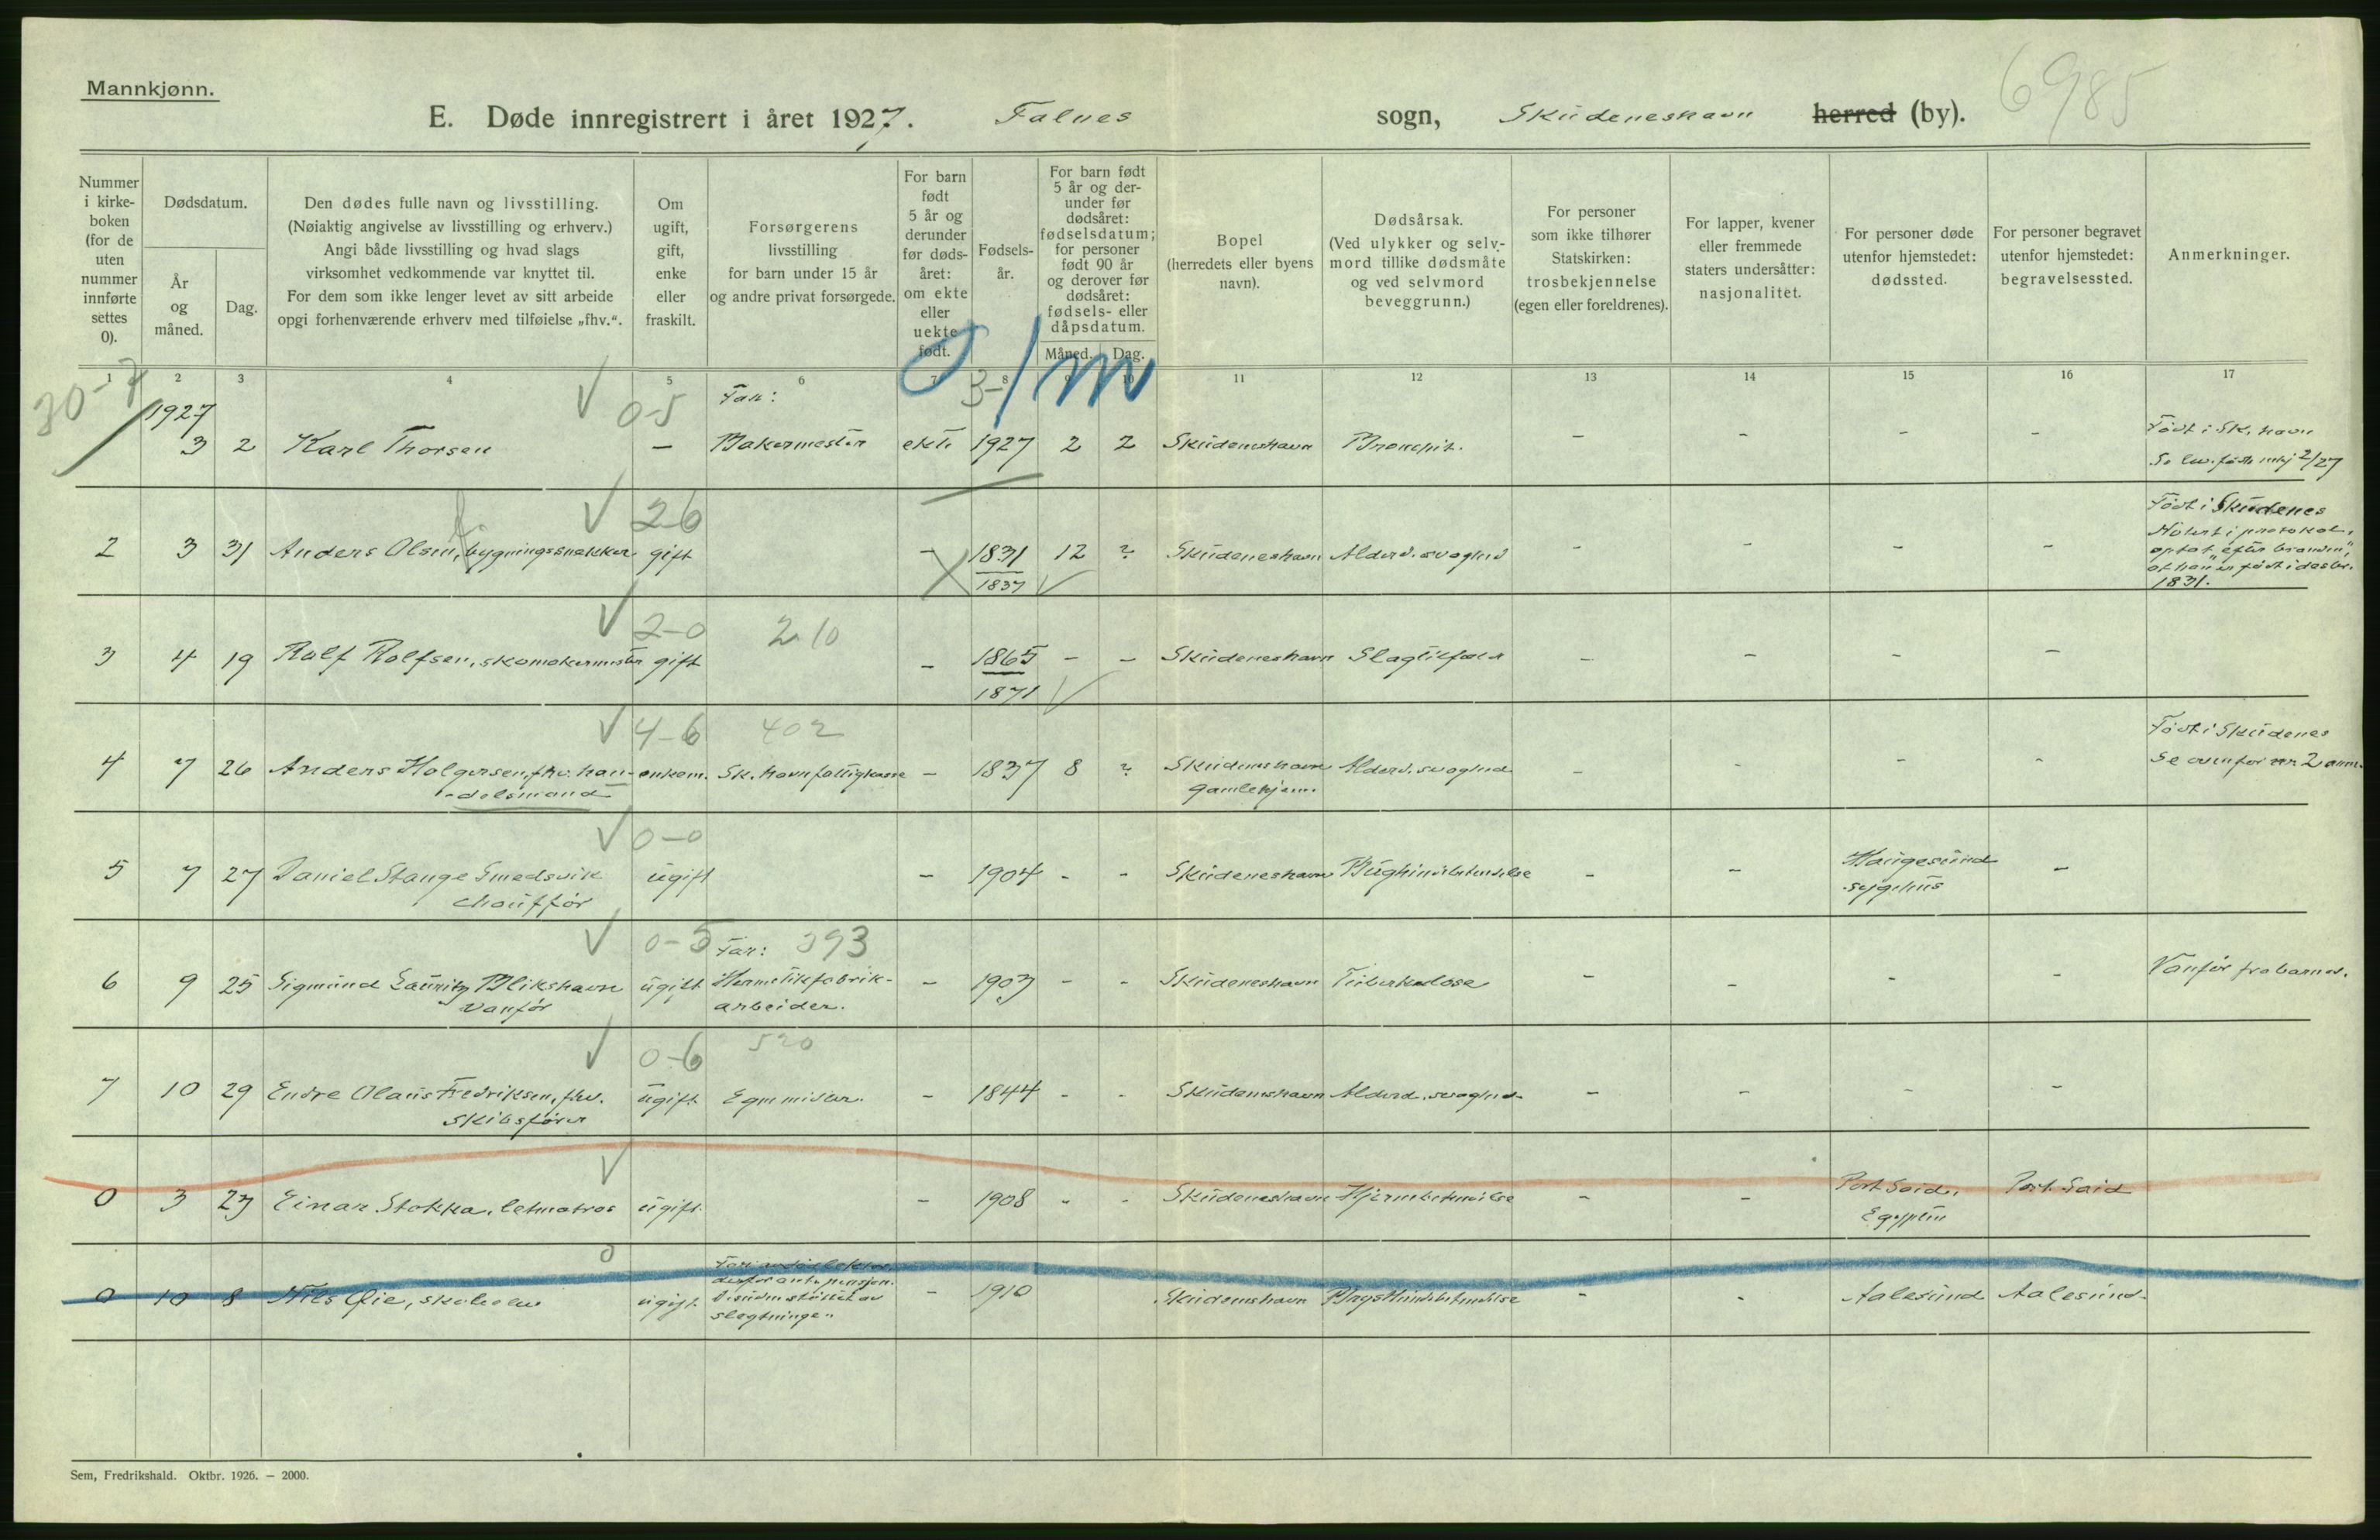 Mannkjønn.
E. Døde innregistrert i året 1927. Falnes sogn, Skudeneshavn herred (by). 6985
Nummer i kirke- boken (for de uten nummer innførte settes 0).
Dødsdatum.
År og måned.
Dag.
Den dødes fulle navn og livsstilling.
(Nøiaktig angivelse av livsstilling og erhverv.)
Angi både livsstilling og hvad slags
virksomhet vedkommende var knyttet til.
For dem som ikke lenger levet av sitt arbeide
opgi forhenværende erhverv med tilføielse „fhv.“.
Om ugift, gift, enke eller fraskilt.
Forsørgerens
livsstilling
for barn under 15 år
og andre privat forsørgede.
For barn født 5 år og derunder før døds- året: om ekte eller uekte født.
Fødsels- år.
For barn født 5 år og der- under før dødsåret: fødselsdatum; for personer født 90 år og derover før dødsåret: fødsels- eller dåpsdatum.
Måned. Dag.
Bopel
(herredets eller byens
navn).
Dødsårsak.
(Ved ulykker og selv-
mord tillike dødsmåte
og ved selvmord
beveggrunn.)
For personer
som ikke tilhører
Statskirken:
trosbekjennelse
(egen eller foreldrenes).
For lapper, kvener
eller fremmede
staters undersåtter:
nasjonalitet.
For personer døde
utenfor hjemstedet:
dødssted.
For personer begravet
utenfor hjemstedet:
begravelsessted.
Anmerkninger.
1 2 3 4 5 6 7 8 9 10 11 12 13 14 15 16 17
30-7 0-5 Far: 3-
1927
3 2 Karl Thorsen — Bakermester ekte 1927 2 2 Skudeneshavn - - - - Født i Sk. havn
2/27
26
2 3 31 Anders Olsen, bygningssnekker gift - 1831 12 ? Skudeneshavn Alderd. svaghed - - - - Født i Skudenes
1837
1831.
2-0 210
3 4 19 Rolf Rolfsen, skomakermester gift - 1865 - - Skudeneshavn Slagtilfæld - - - -
1871
4-6 402
4 7 26 Anders Holgersen, fhv. han- enkem. Sk. havn fattigkasse - 1837 8 ? Skudeneshavn Alderd. svaghed - - - - Født i Skudenes
delsmand gamlehjem. Se ovenfor nr. 2 anm.
0-0
5 7 27 Daniel Stange Smedsvik ugift - 1904 - - Skudeneshavn Bughindebetendelse - - Haugesund -
chauffør sygehus
0-5 Far: 393
6 9 25 Sigmund Lauritz Blikshavn ugift Hermetikfabrik- - 1903 - - Skudeneshavn Tuberkulose - - - - Vanfør fra barnd.
vanfør arbeider.
0-6 520
7 10 29 Endre Olaus Fredriksen, fhv. ugift Egne midler. - 1844 - - Skudeneshavn Alderd. svaghed - - - -
skibsfører
0 3 23 Einar Stokka, letmatros ugift - 1908 - - Skudeneshavn Hjernebetendelse - - Port Said, Port Said
Egypten
0 10 8 Nils Øie, skoleelev ugift - 1910 Skudeneshavn Brysthindebetendelse - - Aalesund Aalesund
slegtninger
Sem, Fredrikshald. Oktbr. 1926. — 2000.